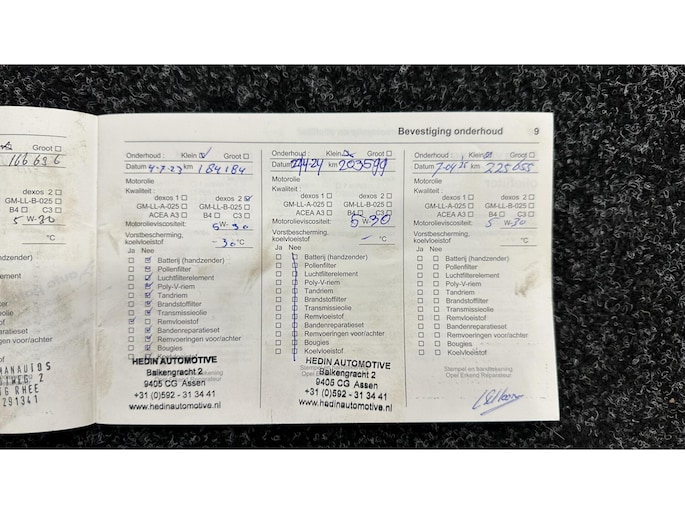 Bevestiging onderhoud 9
Groot
166686
dexos 2
GM-LL-B-025
C3
5 W-30
°C
(handzender)
er
element
m
filter
sieolie
of
ratieset
n voor/achter
of
Onderhoud : Klein Groot
Datum 4-7-23 km 184184
Motorolie
Kwaliteit :
dexos 1 dexos 2
GM-LL-A-025 GM-LL-B-025
ACEA A3 B4 C3
Motorolieviscositeit: 5 W-30
Vorstbescherming,
koelvloeistof -30 °C
Ja Nee
Batterij (handzender)
Pollenfilter
Luchtfilterelement
Poly-V-riem
Tandriem
Brandstoffilter
Transmissieolie
Remvloeistof
Bandenreparatieset
Remvoeringen voor/achter
Bougies
Koelvloeistof
HEDIN AUTOMOTIVE
Balkengracht 2
9405 CG Assen
+31 (0)592 - 31 34 41
www.hedinautomotive.nl
Onderhoud : Klein Groot
Datum km 203599
Motorolie
Kwaliteit :
dexos 1 dexos 2
GM-LL-A-025 GM-LL-B-025
ACEA A3 B4 C3
Motorolieviscositeit: 5 W-30
Vorstbescherming,
koelvloeistof - °C
Ja Nee
Batterij (handzender)
Pollenfilter
Luchtfilterelement
Poly-V-riem
Tandriem
Brandstoffilter
Transmissieolie
Remvloeistof
Bandenreparatieset
Remvoeringen voor/achter
Bougies
Koelvloeistof
Stempel en handtekening
HEDIN AUTOMOTIVE
Balkengracht 2
9405 CG Assen
+31 (0)592 - 31 34 41
www.hedinautomotive.nl
Onderhoud : Klein Groot
Datum km 225055
Motorolie
Kwaliteit :
dexos 1 dexos 2
GM-LL-A-025 GM-LL-B-025
ACEA A3 B4 C3
Motorolieviscositeit: 5 W-30
Vorstbescherming,
koelvloeistof °C
Ja Nee
Batterij (handzender)
Pollenfilter
Luchtfilterelement
Poly-V-riem
Tandriem
Brandstoffilter
Transmissieolie
Remvloeistof
Bandenreparatieset
Remvoeringen voor/achter
Bougies
Koelvloeistof
Stempel en handtekening
Opel Erkend Reparateur
MANAUTOS
2
RHEE
291341